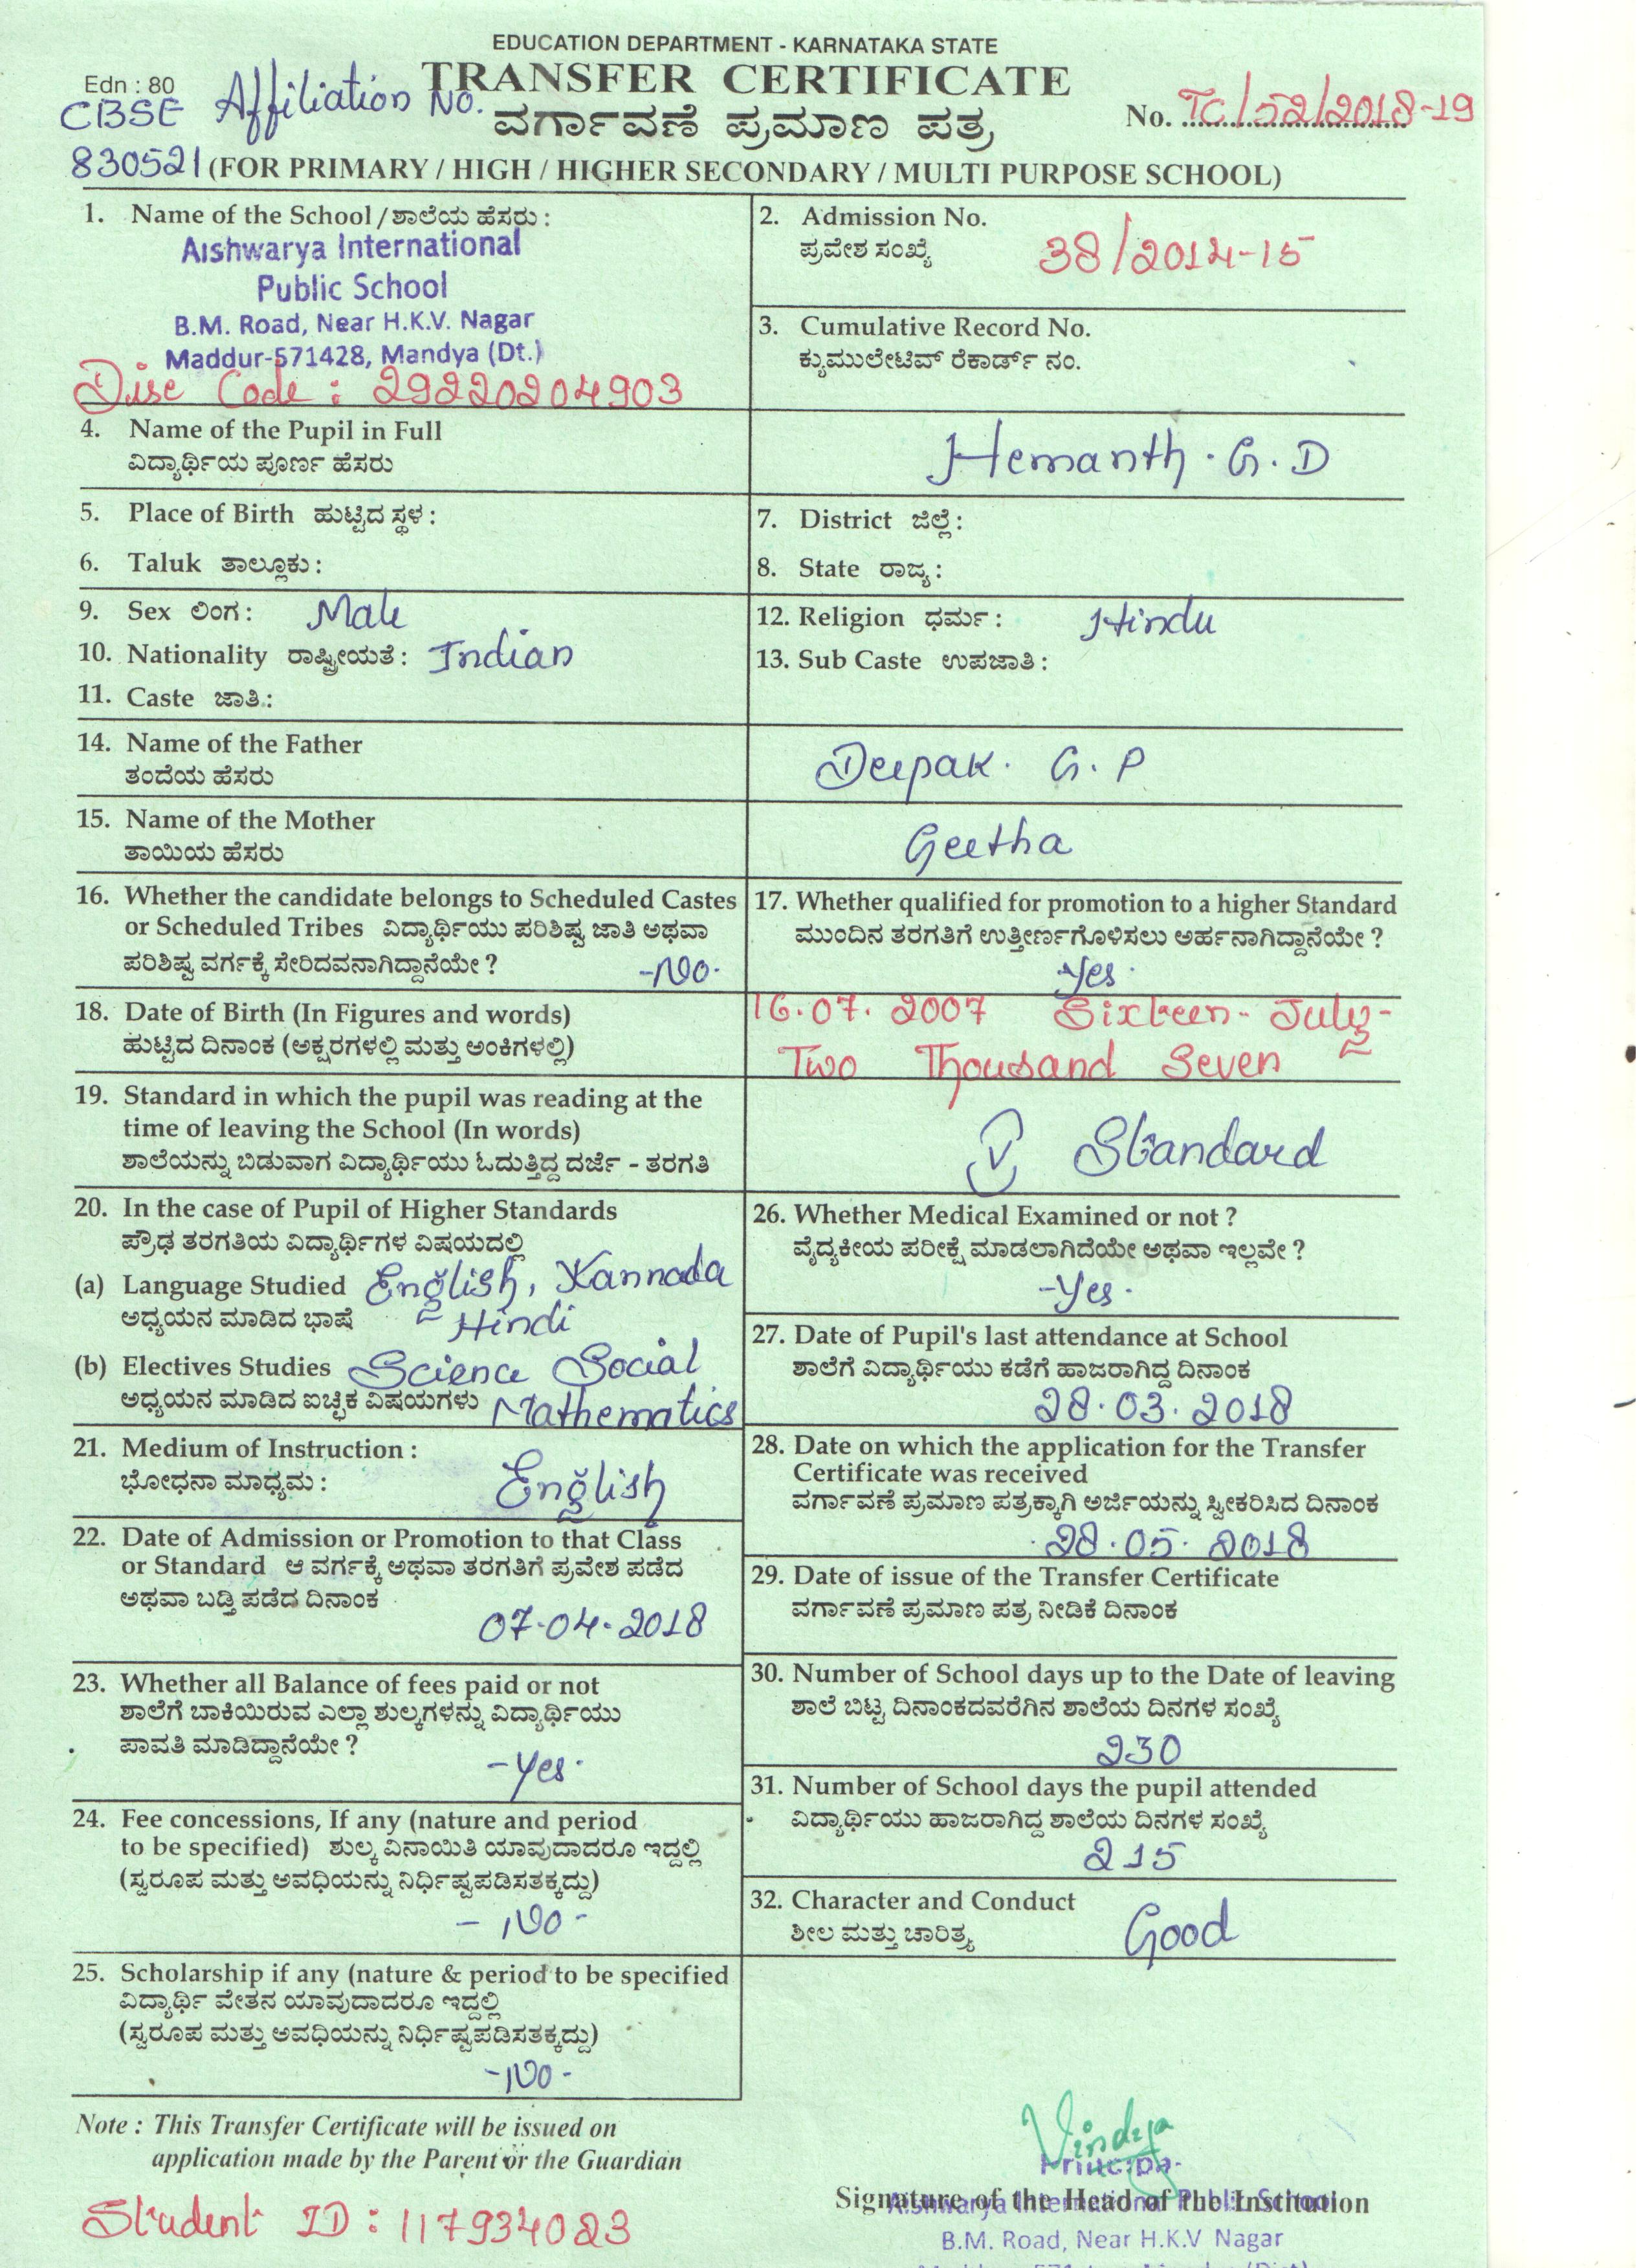 EDUCATION DEPARTMENT - KARNATAKA STATE
Edn : 80
TRANSFER CERTIFICATE
CBSE Affiliation No.
ವರ್ಗಾವಣೆ ಪ್ರಮಾಣ ಪತ್ರ
No. TC/52/2018-19
830521 (FOR PRIMARY / HIGH / HIGHER SECONDARY / MULTI PURPOSE SCHOOL)
1. Name of the School / ಶಾಲೆಯ ಹೆಸರು :
Aishwarya International
Public School
B.M. Road, Near H.K.V. Nagar
Maddur-571428, Mandya (Dt.)
Dise Code : 29220204903
2. Admission No.
ಪ್ರವೇಶ ಸಂಖ್ಯೆ 38/2014-15
3. Cumulative Record No.
ಕ್ಯುಮುಲೇಟಿವ್ ರೆಕಾರ್ಡ್ ನಂ.
4. Name of the Pupil in Full
ವಿದ್ಯಾರ್ಥಿಯ ಪೂರ್ಣ ಹೆಸರು
Hemanth . G . D
5. Place of Birth ಹುಟ್ಟಿದ ಸ್ಥಳ :
6. Taluk ತಾಲ್ಲೂಕು :
7. District ಜಿಲ್ಲೆ :
8. State ರಾಜ್ಯ :
9. Sex ಲಿಂಗ : Male
10. Nationality ರಾಷ್ಟ್ರೀಯತೆ : Indian
11. Caste ಜಾತಿ :
12. Religion ಧರ್ಮ : Hindu
13. Sub Caste ಉಪಜಾತಿ :
14. Name of the Father
ತಂದೆಯ ಹೆಸರು
Deepak . G . P
15. Name of the Mother
ತಾಯಿಯ ಹೆಸರು
Geetha
16. Whether the candidate belongs to Scheduled Castes
or Scheduled Tribes ವಿದ್ಯಾರ್ಥಿಯು ಪರಿಶಿಷ್ಟ ಜಾತಿ ಅಥವಾ
ಪರಿಶಿಷ್ಟ ವರ್ಗಕ್ಕೆ ಸೇರಿದವನಾಗಿದ್ದಾನೆಯೇ ? -No-
17. Whether qualified for promotion to a higher Standard
ಮುಂದಿನ ತರಗತಿಗೆ ಉತ್ತೀರ್ಣಗೊಳಿಸಲು ಅರ್ಹನಾಗಿದ್ದಾನೆಯೇ ?
-Yes-
18. Date of Birth (In Figures and words)
ಹುಟ್ಟಿದ ದಿನಾಂಕ (ಅಕ್ಷರಗಳಲ್ಲಿ ಮತ್ತು ಅಂಕಿಗಳಲ್ಲಿ)
16.07.2007 Sixteen- July-
Two Thousand Seven
19. Standard in which the pupil was reading at the
time of leaving the School (In words)
ಶಾಲೆಯನ್ನು ಬಿಡುವಾಗ ವಿದ್ಯಾರ್ಥಿಯು ಓದುತ್ತಿದ್ದ ದರ್ಜೆ - ತರಗತಿ
V Standard
20. In the case of Pupil of Higher Standards
ಪ್ರೌಢ ತರಗತಿಯ ವಿದ್ಯಾರ್ಥಿಗಳ ವಿಷಯದಲ್ಲಿ
(a) Language Studied English, Kannada
ಅಧ್ಯಯನ ಮಾಡಿದ ಭಾಷೆ Hindi
(b) Electives Studies Science Social
ಅಧ್ಯಯನ ಮಾಡಿದ ಐಚ್ಛಿಕ ವಿಷಯಗಳು Mathematics
21. Medium of Instruction :
ಭೋಧನಾ ಮಾಧ್ಯಮ : English
22. Date of Admission or Promotion to that Class
or Standard ಆ ವರ್ಗಕ್ಕೆ ಅಥವಾ ತರಗತಿಗೆ ಪ್ರವೇಶ ಪಡೆದ
ಅಥವಾ ಬಡ್ತಿ ಪಡೆದ ದಿನಾಂಕ
07-04-2018
23. Whether all Balance of fees paid or not
ಶಾಲೆಗೆ ಬಾಕಿಯಿರುವ ಎಲ್ಲಾ ಶುಲ್ಕಗಳನ್ನು ವಿದ್ಯಾರ್ಥಿಯು
ಪಾವತಿ ಮಾಡಿದ್ದಾನೆಯೇ ?
-Yes-
24. Fee concessions, If any (nature and period
to be specified) ಶುಲ್ಕ ವಿನಾಯಿತಿ ಯಾವುದಾದರೂ ಇದ್ದಲ್ಲಿ
(ಸ್ವರೂಪ ಮತ್ತು ಅವಧಿಯನ್ನು ನಿರ್ಧಿಷ್ಟಪಡಿಸತಕ್ಕದ್ದು)
- No -
25. Scholarship if any (nature & period to be specified
ವಿದ್ಯಾರ್ಥಿ ವೇತನ ಯಾವುದಾದರೂ ಇದ್ದಲ್ಲಿ
(ಸ್ವರೂಪ ಮತ್ತು ಅವಧಿಯನ್ನು ನಿರ್ಧಿಷ್ಟಪಡಿಸತಕ್ಕದ್ದು)
-No-
26. Whether Medical Examined or not ?
ವೈದ್ಯಕೀಯ ಪರೀಕ್ಷೆ ಮಾಡಲಾಗಿದೆಯೇ ಅಥವಾ ಇಲ್ಲವೇ ?
-Yes-
27. Date of Pupil's last attendance at School
ಶಾಲೆಗೆ ವಿದ್ಯಾರ್ಥಿಯು ಕಡೆಗೆ ಹಾಜರಾಗಿದ್ದ ದಿನಾಂಕ
28.03.2018
28. Date on which the application for the Transfer
Certificate was received
ವರ್ಗಾವಣೆ ಪ್ರಮಾಣ ಪತ್ರಕ್ಕಾಗಿ ಅರ್ಜಿಯನ್ನು ಸ್ವೀಕರಿಸಿದ ದಿನಾಂಕ
28.05.2018
29. Date of issue of the Transfer Certificate
ವರ್ಗಾವಣೆ ಪ್ರಮಾಣ ಪತ್ರ ನೀಡಿಕೆ ದಿನಾಂಕ
30. Number of School days up to the Date of leaving
ಶಾಲೆ ಬಿಟ್ಟ ದಿನಾಂಕದವರೆಗಿನ ಶಾಲೆಯ ದಿನಗಳ ಸಂಖ್ಯೆ
230
31. Number of School days the pupil attended
ವಿದ್ಯಾರ್ಥಿಯು ಹಾಜರಾಗಿದ್ದ ಶಾಲೆಯ ದಿನಗಳ ಸಂಖ್ಯೆ
215
32. Character and Conduct
ಶೀಲ ಮತ್ತು ಚಾರಿತ್ರ್ಯ Good
Note : This Transfer Certificate will be issued on
application made by the Parent or the Guardian
Student ID : 117934023
Vindya
Principal
Signature of the Head of the Institution
Aishwarya International Public School
B.M. Road, Near H.K.V Nagar